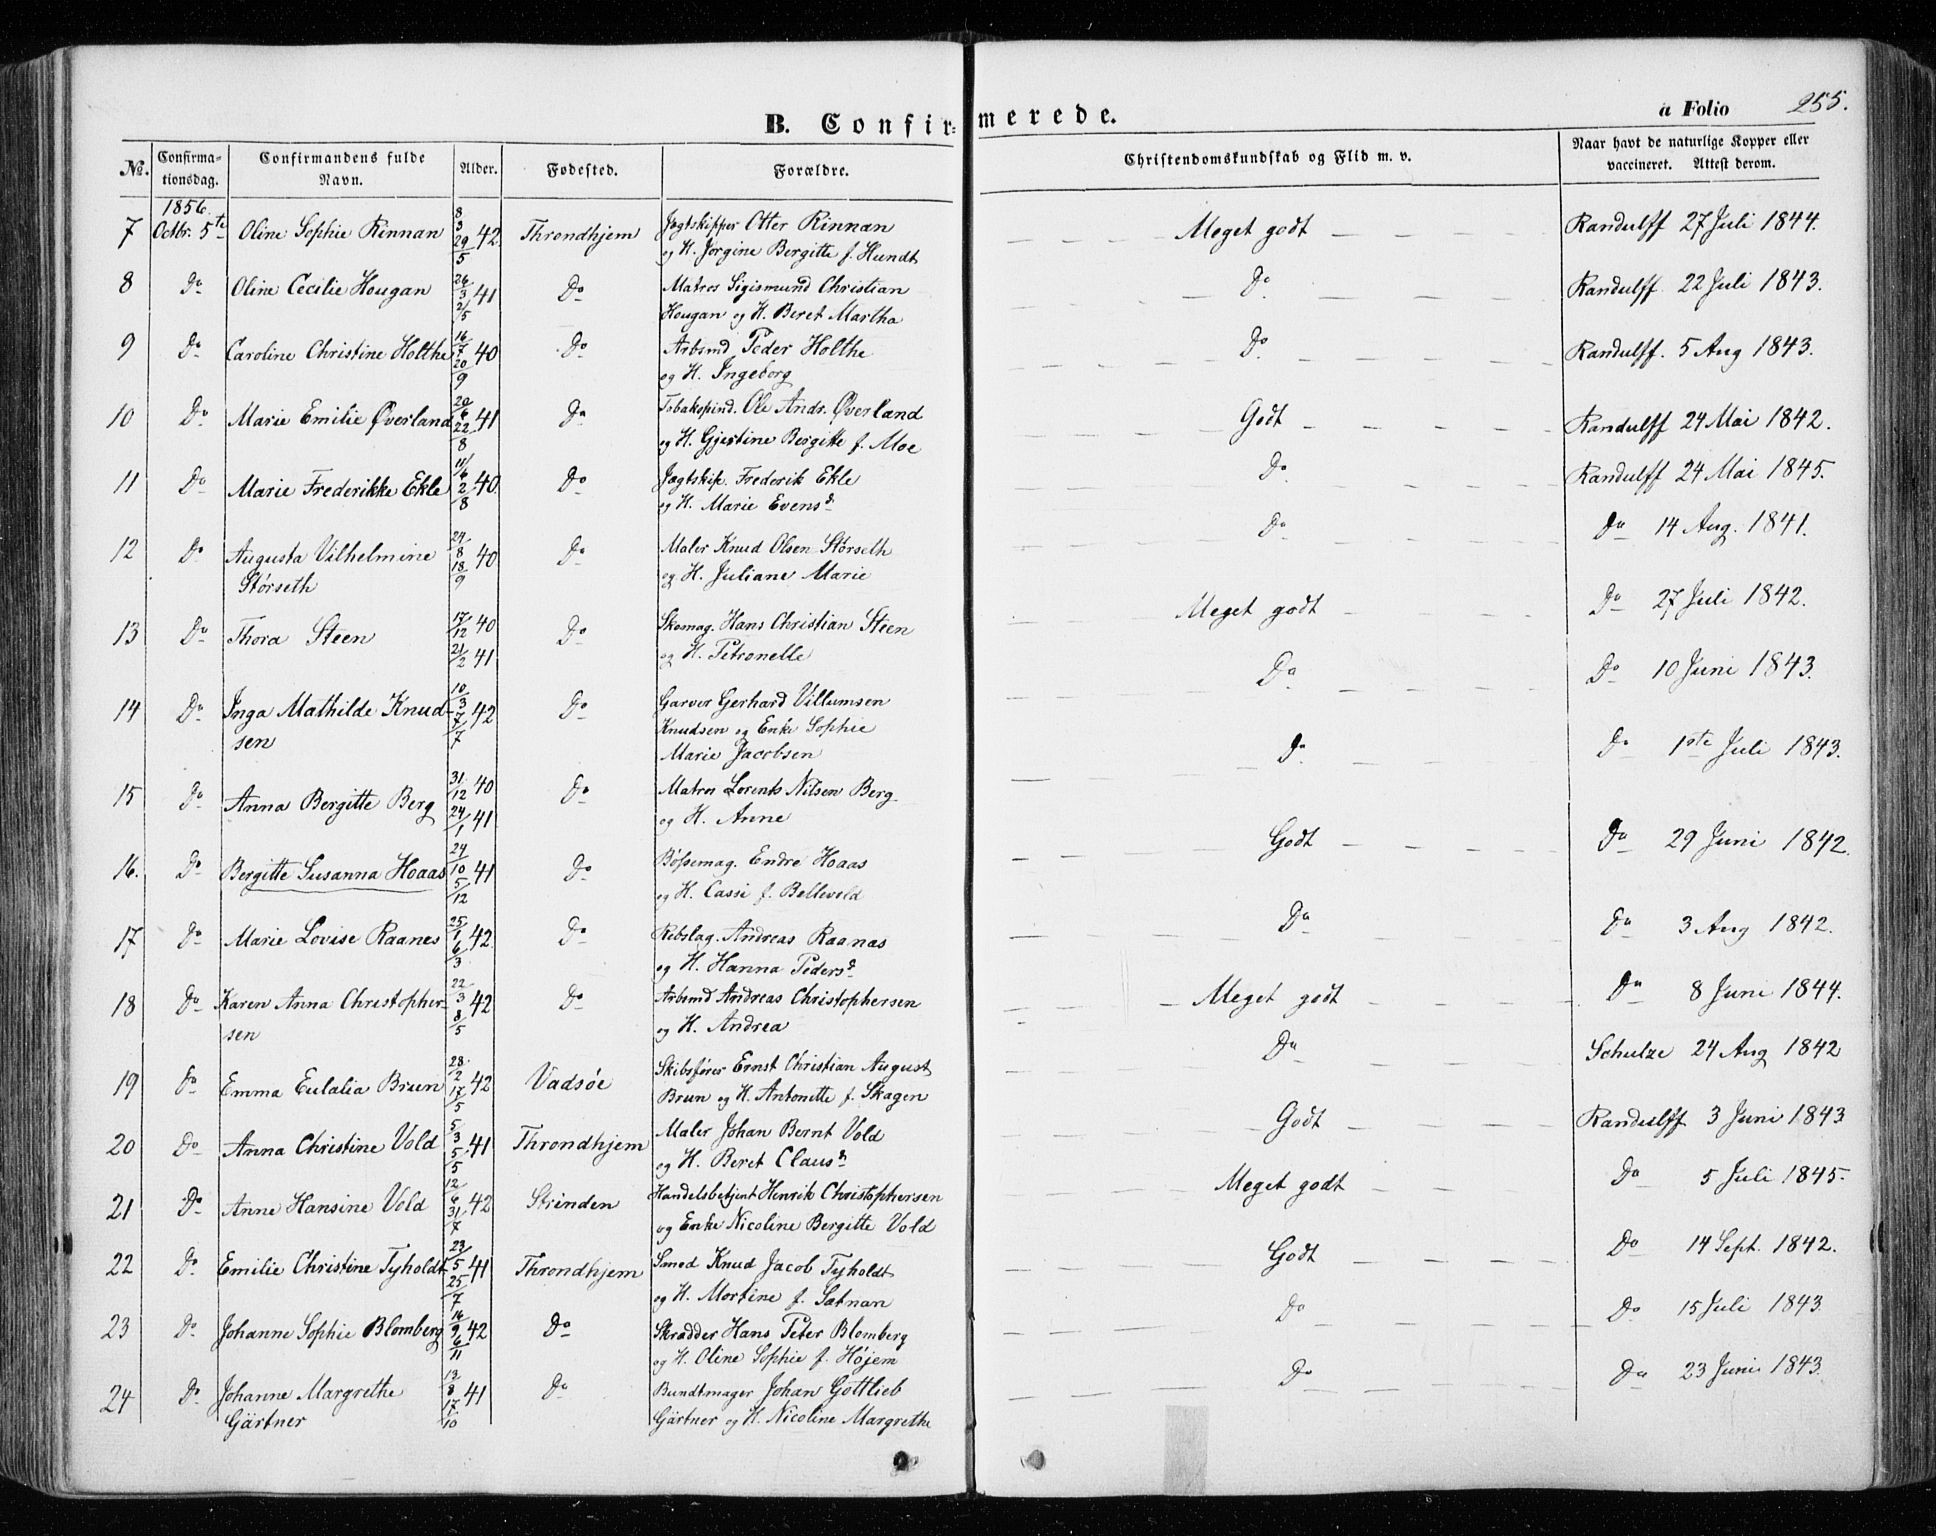 B. Confirmerede. a Folio 255.
No. Confirmationsdag. Confirmandens fulde Navn. Alder. Fødested. Forældre. Christendomskundskab og Flid m. v. Naar havt de naturlige Kopper eller vaccineret. Attest derom.
1856.
7 Octbr. 5te Oline Sophie Rinnan 8/3 29/5 42 Throndhjem Jagtskipper Otter Rinnan Meget godt Randulff 27 Juli 1844.
og H. Jørgine Bergitte f. Hundt
8 Do Oline Cecilie Hougan 26/3 2/5 41 Do Matros Sigismund Christian Do Randulff 22 Juli 1843.
Hougan og H. Beret Martha
9 Do Caroline Christine Holthe 16/7 20/9 40 Do Arbsmd Peder Holthe Do Randulff. 5 Aug 1843.
og H. Ingeborg
10 Do Marie Emilie Øverland 20/6 22/8 41 Do Tobakspind. Ole Andr. Øverland Godt Randulff 24 Mai 1842.
og H. Gjertine Bergitte f. Moe
11 Do Marie Frederikke Ekle 11/6 2/8 40. Do Jægtskip. Frederik Ekle Do Randulff 24 Mai 1845.
og H. Marie Evensd.
12 Do Augusta Vilhelmine 24/8 18/9 40 Do Maler Knud Olsen Størseth Do Do 14 Aug. 1841.
Størseth og H. Juliane Marie
13 Do Thora Steen 17/12 40 21/2 41 Do Skomag. Hans Christian Steen Meget godt Do 27 Juli 1842.
og H. Petronelle
14 Do Inga Mathilde Knud- 10/3 7/7 42 Do Garver Gerhard Villumsen Do Do 10 Juni 1843.
sen Knudsen og Enke Sophie
Marie Jacobsen
15 Do Anna Bergitte Berg 31/12 40 24/1 41 Do Matros Lorents Nilsen Berg Do Do 1ste Juli 1843.
og H. Anne
16. Do Bergitte Susanna Hoaas 24/10 5/12 41 Do Bøssemag. Endre Hoaas Godt Do 29 Juni 1842.
og H. Cassi f. Bellevold
17 Do Marie Lovise Raanes 25/1 6/3 42. Do Rebslag. Andreas Raanas Do Do 3 Aug 1842.
og H. Hanna Pedersd.
18 Do Karen Anna Christopher- 22/3 8/5 42 Do Arbsmd Andreas Christophersen Meget godt Do 8 Juni 1844.
sen og H. Andrea
19 Do Emma Eulalia Brun 28/2 17/5 42 Vadsøe Skibsfører Ernst Christian August Do Schulze 24 Aug 1842
Brun og H. Antonette f. Skagen
20 Do Anna Christine Vold 5/3 5/5 41 Throndhjem Maler Johan Bernt Vold Godt Randulff 3 Juni 1843
og H. Beret Clausd.
21 Do Anne Hansine Vold 12/6 31/7 42 Strinden Handelsbetjent Henrik Christophersen Meget godt Do 5 Juli 1845.
og Enke Nicoline Bergitte Vold
22 Do Emilie Christine Tyholdt 23/5 25/7 41 Throndhjem Smed Knud Jacob Tyholdt Godt Do 14 Sept. 1842.
og H. Mortine f. Satnan
23 Do Johanne Sophie Blomberg 14/9 6/11 42 Do Skrædder Hans Peter Blomberg Do Do 15 Juli 1843
og H. Oline Sophie f. Højem
24 Do Johanne Margrethe 12/8 17/10 41 Do Bundtmager Johan Gottlieb Do Do 23 Juni 1843.
Gärtner Gärtner og H. Nicoline Margrethe